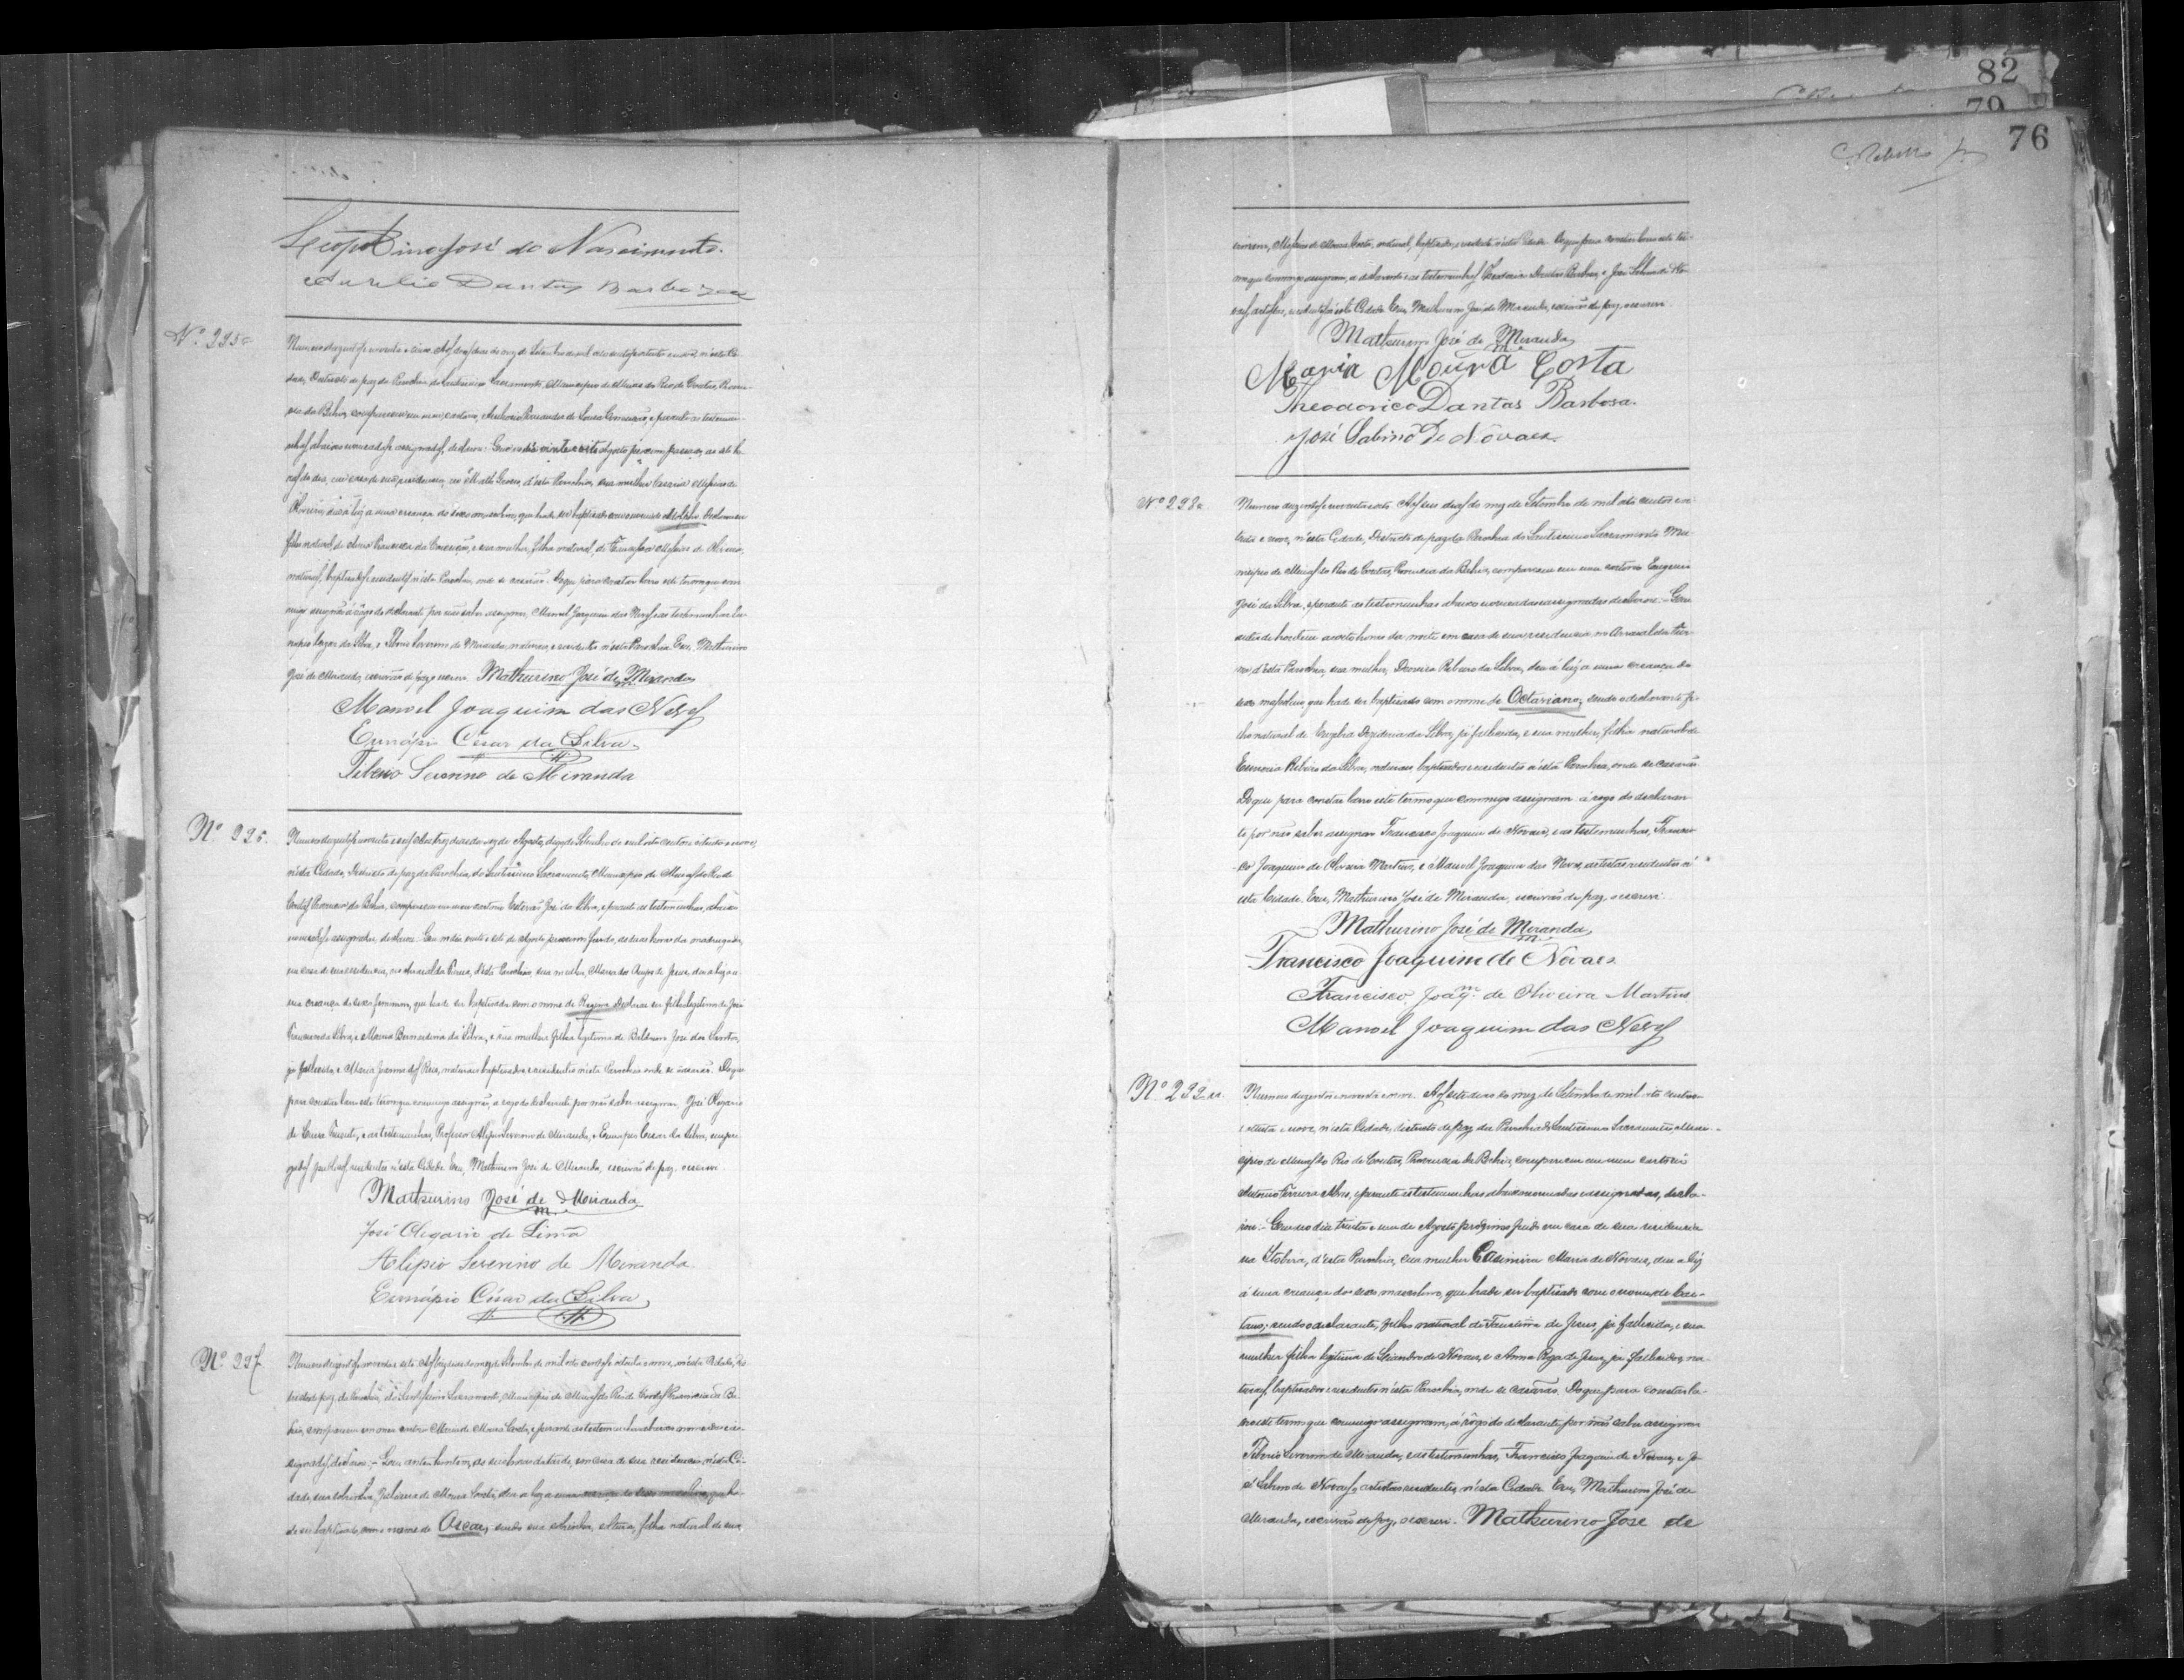 Leopoldino José do Nascimento.
Aurelio Dantas Barboza
Nº 295
Numero duzentos e noventa e cinco. Aos dous dias do mez de Setembro de mil oito centos e oitenta e nove, n'esta Ci-
dade, Districto de paz da Parochia do Santissimo Sacramento, Municipio de Minas do Rio de Contas, Provin-
cia da Bahia, compareceu em meu cartorio, Antonio Fernandes de Souza e perante as testemu-
nhas abaixo nomeadas e assignadas, declarou: Que no dia vinte e oito Agosto proximo passado, as sete ho-
ras do dia, em casa de sua residencia, no Matto Grosso, d'esta Parochia, sua mulher Maria Messias de
Oliveira, deu á luz a uma creança do sexo masculino, que hade ser baptisado com o nome de Adolpho
filho natural de Anna Francisca da Conceição, e sua mulher, filha natural, de Messias de Oliveira,
naturaes, baptisados e residentes n'esta Parochia, onde se casarão. Do que para constar lavro este termo que com-
migo assignão á rogo do declarante por não saber assignar, Manoel Joaquim das Neves e as testemunhas Eu-
napio Cezar da Silva, e Tiberio Severino de Miranda, naturaes, e residentes n'esta Parochia. Eu, Mathurino
José de Miranda, escrivão de paz o escrevi. Mathurino José de Miranda
Manoel Joaquim das Neves
Eunápio César da Silva.
Tiberio Severino de Miranda
Nº 296.
Numero duzentos e noventa e seis dias do mez de Agosto, digo de Setembro de mil oito centos e oitenta e nove,
n'esta Cidade, Districto de paz da Parochia, do Santissimo Sacramento, Municipio de Minas do Rio de
Contas Provincia da Bahia, compareceu em meu cartorio Estevão José da Silva, e perante as testemunhas, abaixo
nomeadas e assignadas, declarou. Que no dia vinte e sete de Agosto proximo findo, as duas horas da madrugada,
em casa de sua residencia, no Arraial da Furna, d'esta Parochia, sua mulher, Maria dos Anjos de Jesus, deu a luz a u-
ma creança do sexo feminino, que hade ser baptisada com o nome de Regina Declarou ser filho legitimo de José
da Silva, e Maria Bernardina da Silva, e sua mulher filha legitima de José dos Santos,
já fallecido, e Maria Joanna dos Reis, naturaes baptisados, e residentes n'esta Parochia onde se casarão. Do que
para constar lavro este termo que commigo assignão, a rogo do declarante por não saber assignar, José Olegario
de Lima e as testemunhas, Professor Alipio Severino de Miranda, e Eunapio Cezar da Silva, empre-
gados publicos, residentes n'esta Cidade. Eu, Mathurino José de Miranda, escrivão de paz, o escrevi.
Mathurino José de Miranda
José Olegario de Lima
Alipio Severino de Miranda
Eunápio César da Silva
Nº 297.
Numero duzentos e noventa e sete. Aos dias do mez de Setembro de mil oito centos e oitenta e nove, n'esta Cidade, Dis-
tricto de paz, da Parochia, do Santissimo Sacramento, Municipio de Minas do Rio de Contas, Provincia da Ba-
hia, compareceu em meu cartorio Maria de Moura Costa, e perante as testemunhas abaixo nomeadas e as-
signadas, declarou: - Que antes hontem, as horas da tarde, em casa de sua residencia, n'esta Ci-
dade, sua sobrinha, Juliana de Moura Costa, deu a luz a uma creança do sexo masculino, que ha-
de ser baptisado, com o nome de Oscar, sendo sua sobrinha, solteira, filha natural de sua
82
79
76
de Moura Costa, natural, baptisada, e residente n'esta Cidade. Do que para constar lavro este ter-
mo que commigo assignam, a declarante e as testemunhas Theodorico Dantas Barbosa, e José Sabino de No-
vaes, artistas, residentes n'esta Cidade. Eu, Mathurino José de Miranda, escrivão de paz, o escrevi
Mathurino José de Miranda
Maria Moura Costa
Theodorico Dantas Barbosa.
José Sabino de Nôvaes.
Nº 298
Numero duzentos e noventa e oito. Aos seis dias do mez de Setembro de mil oito centos e oi-
tenta e nove, n'esta Cidade, Districto de paz da Parochia do Santissimo Sacramento Mu-
nicipio de Minas do Rio de Contas, Provincia da Bahia, compareceu em meu cartorio Eugenio
José da Silva, e perante as testemunhas abaixo nomeadas e assignadas declarou: - Que
hontem as oito horas da noite em casa de sua residencia no Arraial da Fur-
na, d'esta Parochia, sua mulher, Ribeiro da Silva, deu á luz a uma creança do
sexo masculino, que hade ser baptisado com o nome de Octaviano, sendo o declarante fi-
lho natural de da Silva, já fallecida, e sua mulher, filha natural de
Ribeiro da Silva, naturaes, baptisados e residentes n'esta Parochia, onde se casarão.
Do que para constar lavro este termo que commigo assignam á rogo do declaran-
te por não saber assignar Francisco Joaquim de Novaes, e as testemunhas, Francis-
co Joaquim de Oliveira Martins, e Manoel Joaquim das Neves, artistas, residentes n'
esta Cidade. Eu, Mathurino José de Miranda, escrivão de paz, o escrevi.
Mathurino José de Miranda
Francisco Joaquim de Nôvaes
Francisco Joaqm. de Oliveira Martins
Manoel Joaquim das Neves
Nº 299
Numero duzentos e noventa e nove. Aos sete dias do mez de Setembro de mil oito centos
e oitenta e nove, n'esta Cidade, districto de paz da Parochia do Santissimo Sacramento, Muni-
cipio de Minas do Rio de Contas, Provincia da Bahia, compareceu em meu cartorio
Antonio Ferreira Alves, e perante as testemunhas abaixo nomeadas e assignadas, decla-
rou: - Que no dia trinta e um de Agosto proximo findo em casa de sua residencia
na Itabira, d'esta Parochia, sua mulher Casimira Maria de Novaes, deu a luz
á uma creança do sexo masculino, que hade ser baptisado com o nome de Cae-
tano; sendo o declarante, filho natural de Faustina de Jesus, já fallecida, e sua
mulher filha legitima de Leandro de Novaes, e Anna Rosa de Jesus, já fallecidos, na-
turaes, baptisados e residentes n'esta Parochia, onde se casarão. Do que para constar la-
vro este termo que commigo assignam, á rogo do declarante, por não saber assignar
Tiberio Severino de Miranda, e as testemunhas, Francisco Joaquim de Novaes, e Jo-
sé Sabino de Novaes, artistas residentes, n'esta Cidade. Eu, Mathurino José de
Miranda, escrivão de paz, o escrevi. Mathurino José de